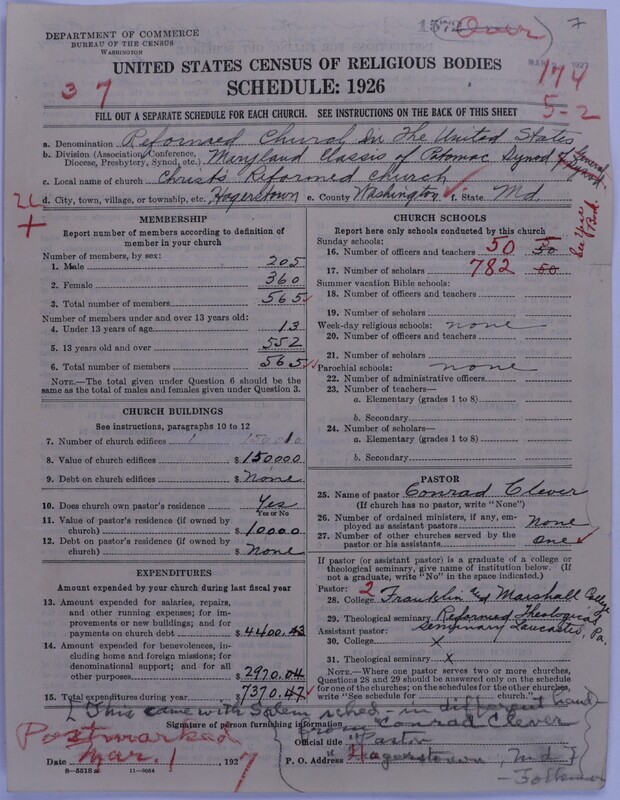 DEPARTMENT OF COMMERCE
BUREAU OF THE CENSUS
WASHINGTON
1572 (Over) 7
MAR 1927
174
5-2
3 7
UNITED STATES CENSUS OF RELIGIOUS BODIES
SCHEDULE: 1926
FILL OUT A SEPARATE SCHEDULE FOR EACH CHURCH. SEE INSTRUCTIONS ON THE BACK OF THIS SHEET
a. Denomination Reformed Church in The United States
b. Division (Association, Conference, Diocese, Presbytery, Synod, etc.) Maryland Classis of Potomac Synod of General Synod
c. Local name of church Christs Reformed Church
d. City, town, village, or township, etc. Hagerstown e. County Washington f. State Md.
MEMBERSHIP
Report number of members according to definition of
member in your church
Number of members, by sex:
1. Male 205
2. Female 360
3. Total number of members 565
Number of members under and over 13 years old:
4. Under 13 years of age 13
5. 13 years old and over 552
6. Total number of members 565
NOTE.—The total given under Question 6 should be
the same as the total of males and females given under Question 3.
CHURCH BUILDINGS
See instructions, paragraphs 10 to 12
7. Number of church edifices 1
8. Value of church edifices $ 150000
9. Debt on church edifices $ None
10. Does church own pastor's residence Yes
Yes or No
11. Value of pastor's residence (if owned by
church) $ 10000
12. Debt on pastor's residence (if owned by
church) $ None
EXPENDITURES
Amount expended by your church during last fiscal year
13. Amount expended for salaries, repairs,
and other running expenses; for im-
provements or new buildings; and for
payments on church debt $ 4400.43
14. Amount expended for benevolences, in-
cluding home and foreign missions; for
denominational support; and for all
other purposes $ 2970.04
15. Total expenditures during year $ 7370.47
CHURCH SCHOOLS
Report here only schools conducted by this church
Sunday schools:
16. Number of officers and teachers 50
17. Number of scholars 782
Summer vacation Bible schools:
18. Number of officers and teachers
19. Number of scholars
Week-day religious schools: none
20. Number of officers and teachers
21. Number of scholars
Parochial schools: none
22. Number of administrative officers
23. Number of teachers—
a. Elementary (grades 1 to 8)
b. Secondary
24. Number of scholars—
a. Elementary (grades 1 to 8)
b. Secondary
PASTOR
25. Name of pastor Conrad Clever
(If church has no pastor, write "None")
26. Number of ordained ministers, if any, em-
ployed as assistant pastors None
27. Number of other churches served by the
pastor or his assistants One
If pastor (or assistant pastor) is a graduate of a college or
theological seminary, give name of institution below. (If
not a graduate, write "No" in the space indicated.)
Pastor: 2
28. College Franklin and Marshall College
29. Theological seminary Reformed Theological
Seminary Lancaster, Pa.
Assistant pastor:
30. College x
31. Theological seminary x
NOTE.—Where one pastor serves two or more churches,
Questions 28 and 29 should be answered only on the schedule
for one of the churches; on the schedules for the other churches,
write "See schedule for church."
[This came with Salem sched - in different hand
Signature of person furnishing information from Conrad Clever
Official title Pastor
P. O. Address Hagerstown, Md
Postmarked
Mar. 1
Date 1927
8—5518a 11—9054